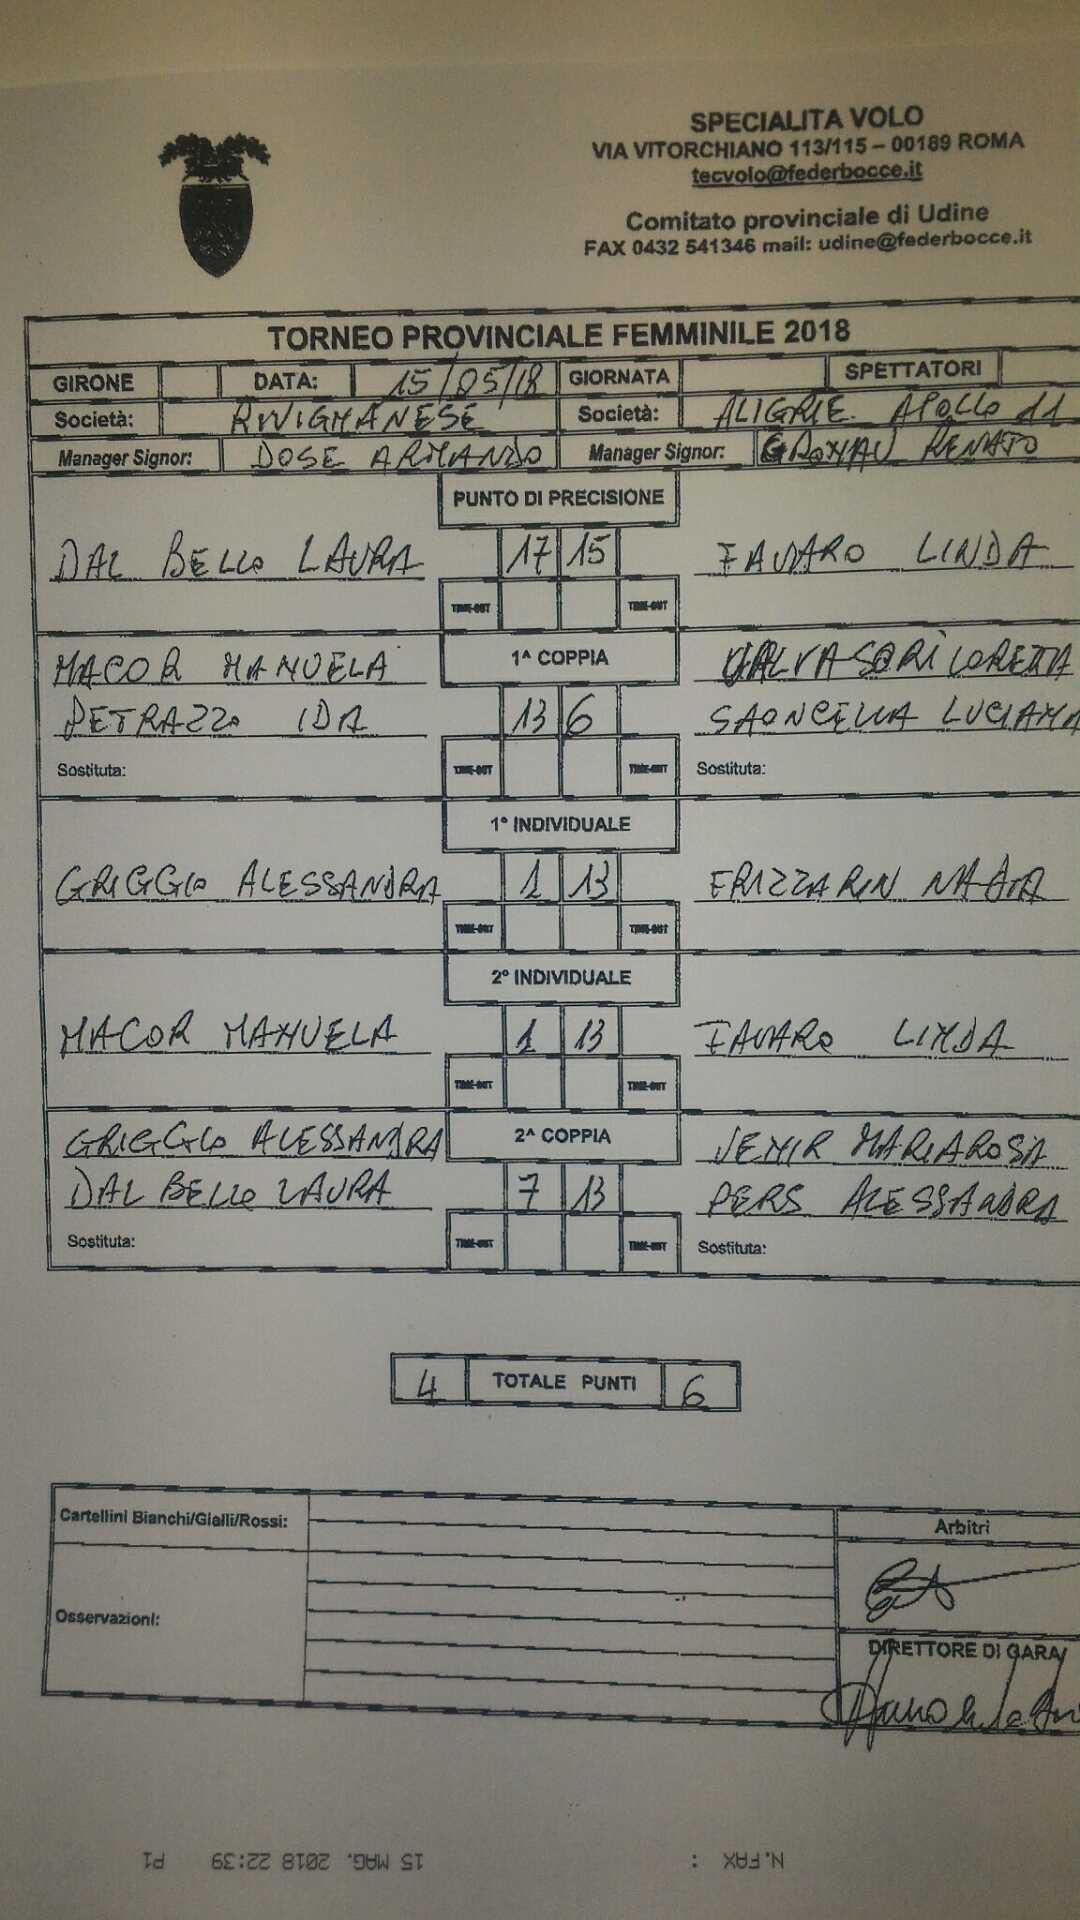 SPECIALITA VOLO
VIA VITORCHIANO 113/115 – 00189 ROMA
tecvolo@federbocce.it
Comitato provinciale di Udine
FAX 0432 541346 mail: udine@federbocce.it
TORNEO PROVINCIALE FEMMINILE 2018
GIRONE DATA: 15/05/18 GIORNATA SPETTATORI
Società: RIVIGNANESE Società: APOLLO 11
Manager Signor: DOSE ARMANDO Manager Signor: RENATO
PUNTO DI PRECISIONE
DAL BELLO LAURA 17 15 FAVARO LINDA
TIME-OUT TIME-OUT
MACOR MANUELA 1^ COPPIA VALVASORI LORETTA
PETRAZZO IDA 13 6 SAONCELLA LUCIANA
TIME-OUT TIME-OUT
Sostituta: Sostituta:
1° INDIVIDUALE
GRIGGIO ALESSANDRA 1 13 FRIZZARIN NADIA
TIME-OUT TIME-OUT
2° INDIVIDUALE
MACOR MANUELA 1 13 FAVARO LINDA
TIME-OUT TIME-OUT
GRIGGIO ALESSANDRA 2^ COPPIA VENIR MARIAROSA
DAL BELLO LAURA 7 13 PERS ALESSANDRA
TIME-OUT TIME-OUT
Sostituta: Sostituta:
4 TOTALE PUNTI 6
Cartellini Bianchi/Gialli/Rossi:
Arbitri
Osservazioni:
DIRETTORE DI GARA
15 MAG. 2018 22:39 P1
N.FAX :